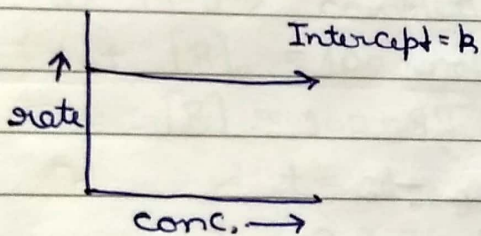 Intercept = k
rate
conc.